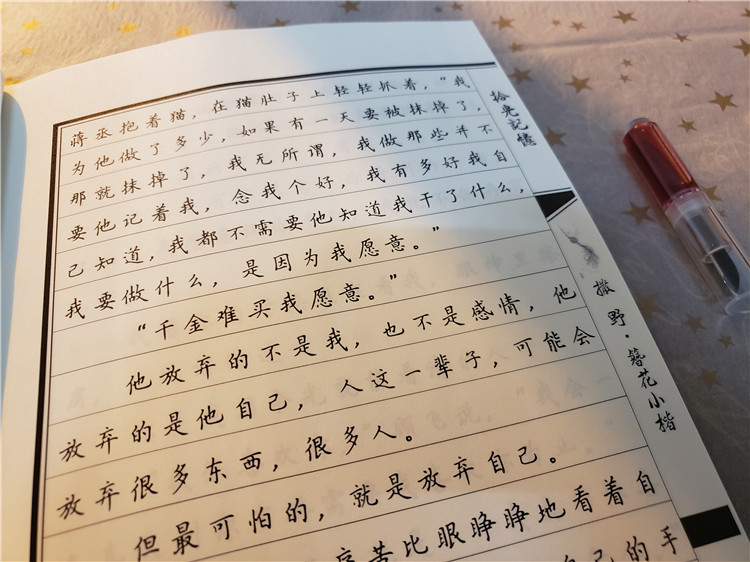 蒋丞抱着猫，在猫肚子上轻轻抓着，“我
为他做了多少，如果有一天要被抹掉了，
那就抹掉了，我无所谓，我做那些并不
要他记着我，念我个好，我有多好我自
己知道，我都不需要他知道我干了什么，
我要做什么，是因为我愿意。”
“千金难买我愿意。”
他放弃的不是我，也不是感情，他
放弃的是他自己，人这一辈子，可能会
放弃很多东西，很多人。
但最可怕的，就是放弃自己。
苦比眼睁睁地看着自
自己的手
拾光記憶
撒野·簪花小楷